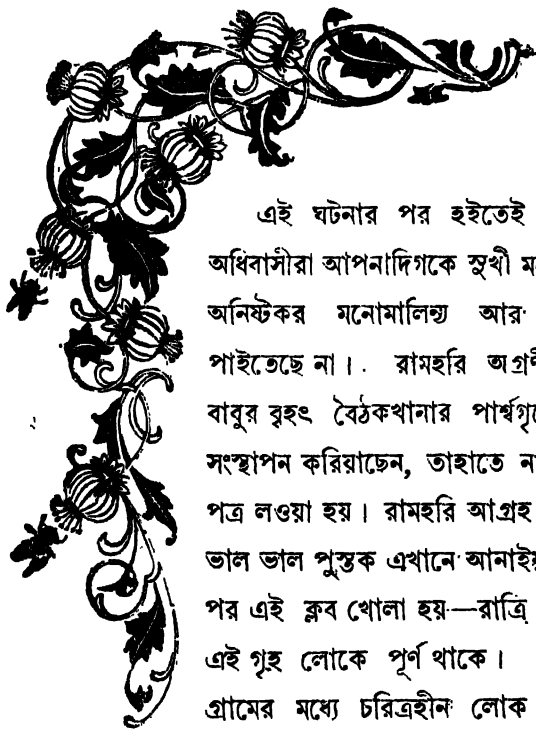 এই ঘটনার পর হইতেই
অধিবাসীরা আপনাদিগকে সুখী
অনিষ্টকর মনোমালিন্য আর
পাইতেছে না। রামহরি
বাবুর বৃহৎ বৈঠকখানার
সংস্থাপন করিয়াছেন, তাহাতে
পত্র লওয়া হয়। রামহরি আগ্রহ
ভাল ভাল পুস্তক এখানে
পর এই ক্লব খোলা হয়—রাত্রি
এই গৃহ লোকে পূর্ণ থাকে।
গ্রামের মধ্যে চরিত্রহীন লোক